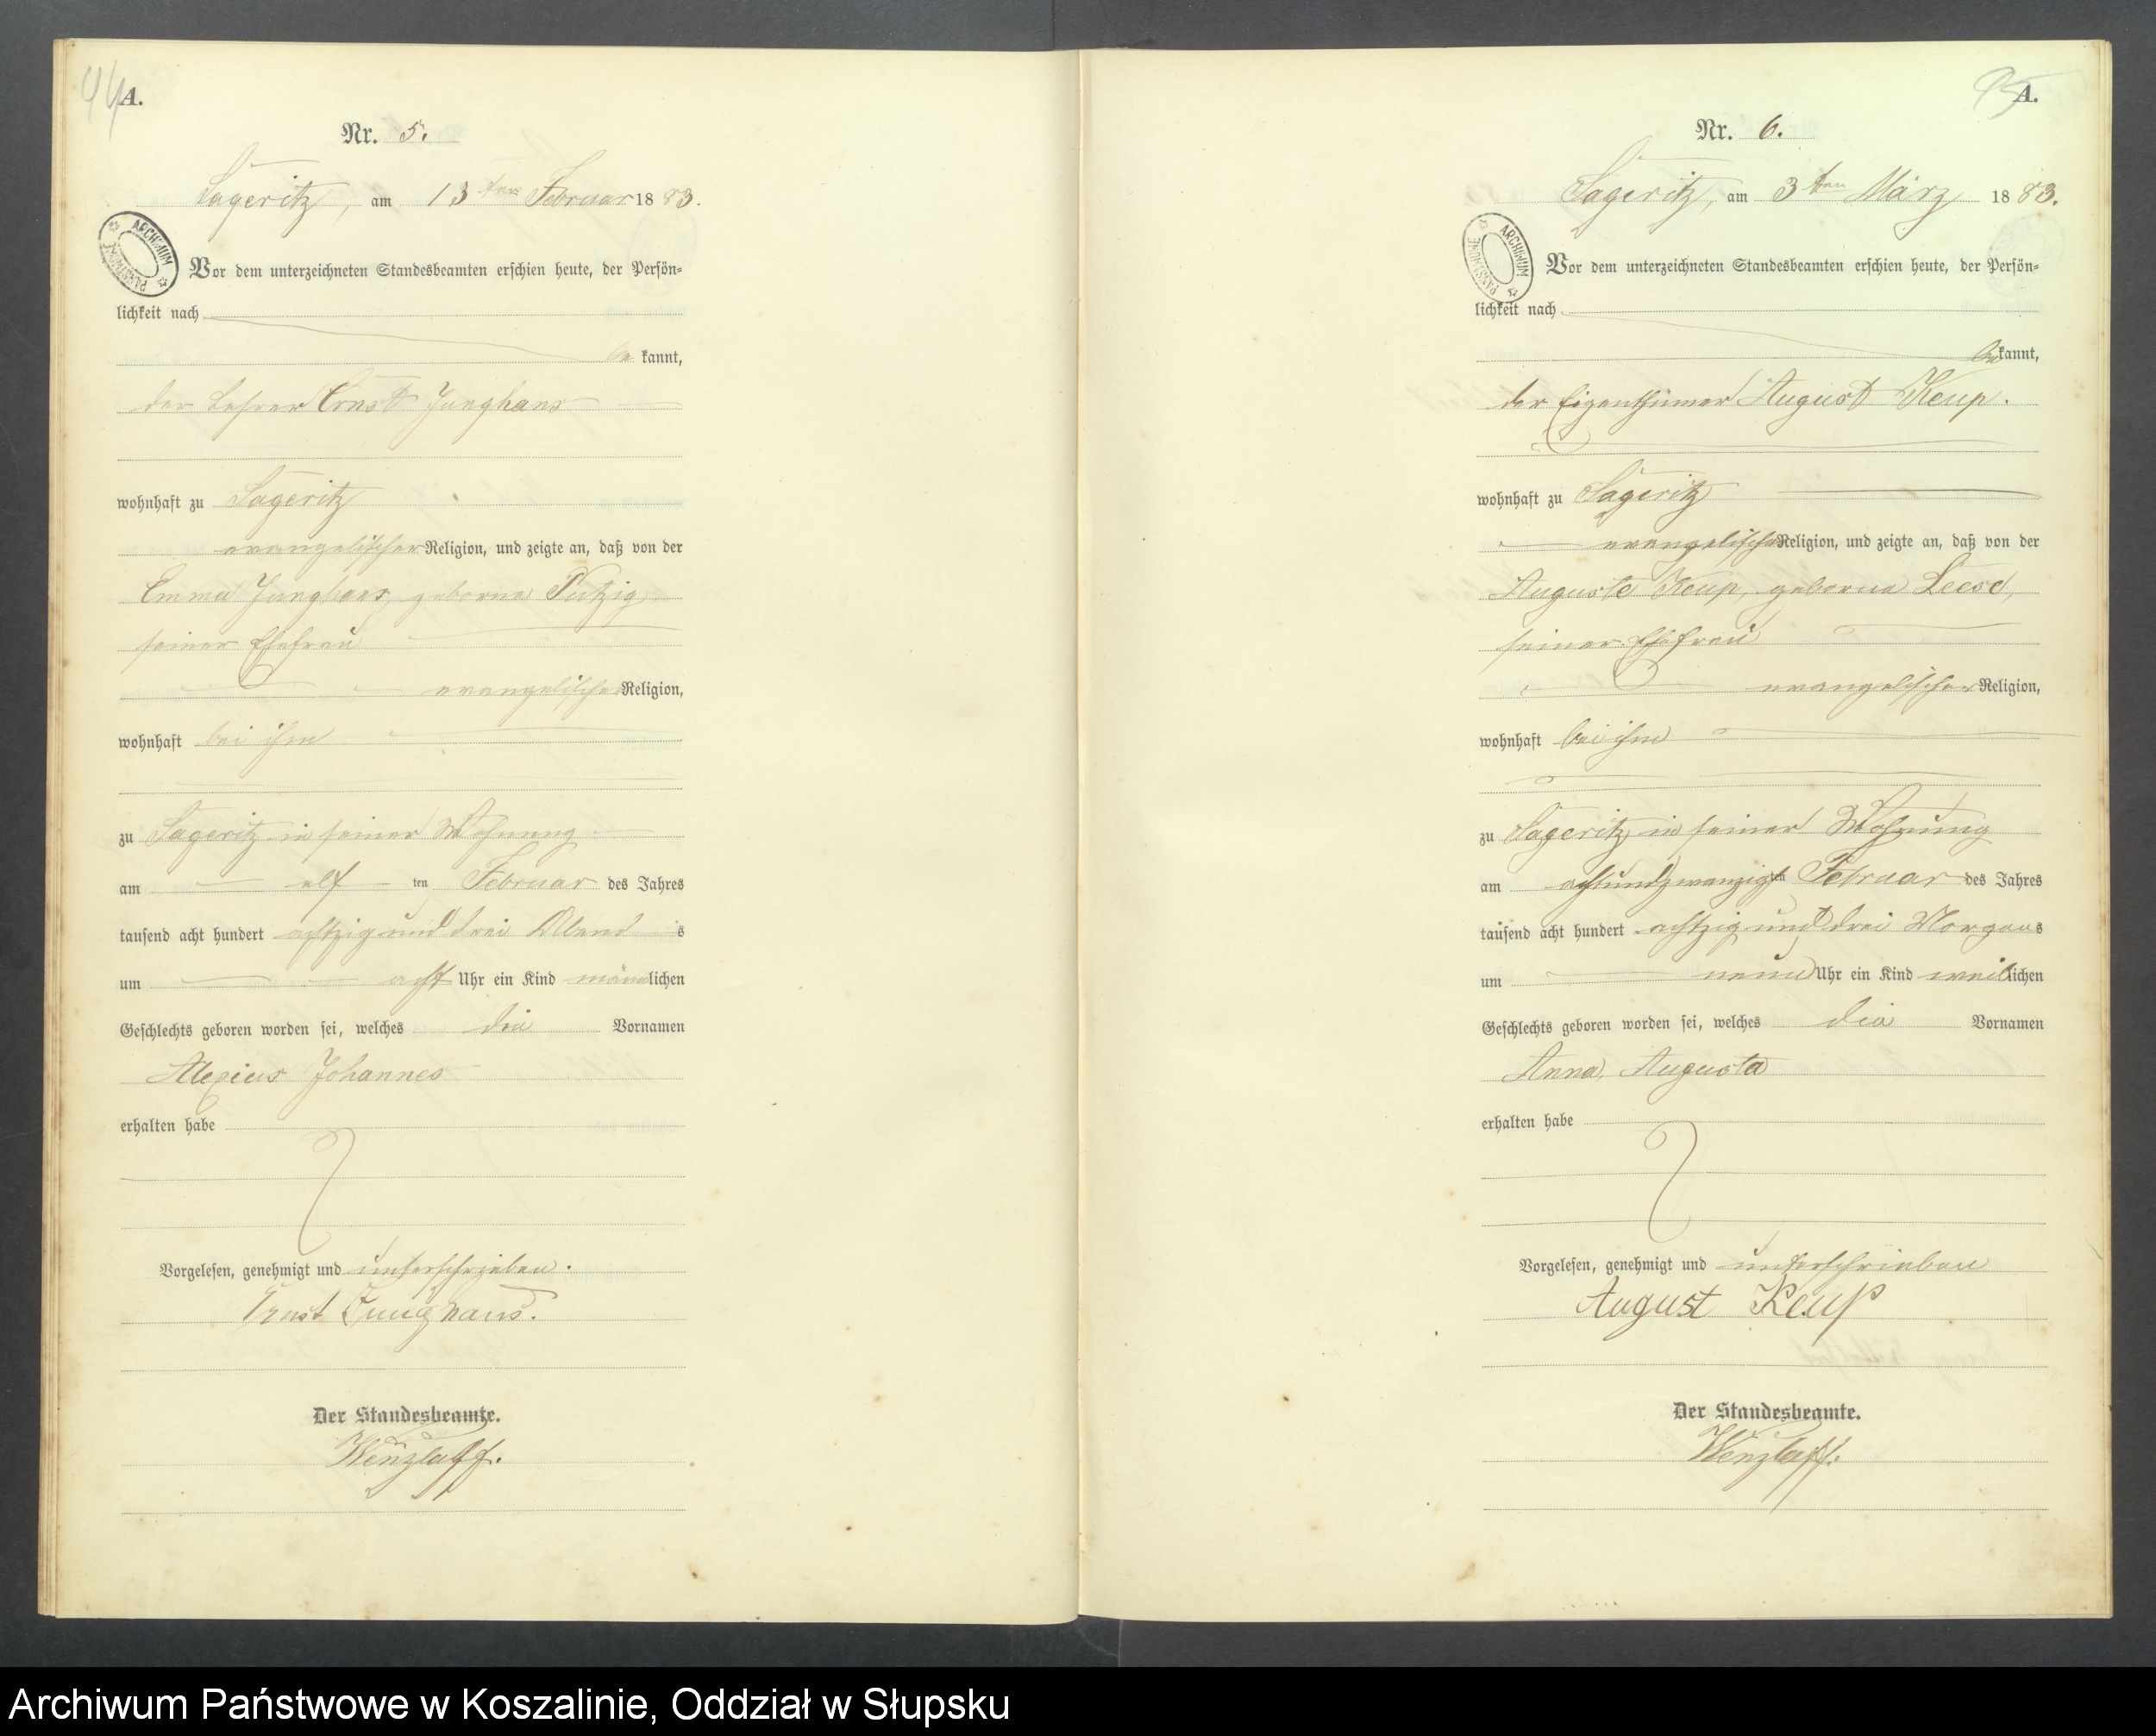 A.
Nr. 5.
Sageritz, am 13ten Februar 1883.
ARCHIWUM PAŃSTWOWE
Vor dem unterzeichneten Standesbeamten erschien heute, der Persön-
lichkeit nach
bekannt,
der Lehrer Ernst Junghans
wohnhaft zu Sageritz
evangelischer Religion, und zeigte an, daß von der
Emma Junghans, geborne Putzig,
seiner Ehefrau
evangelischer Religion,
wohnhaft bei ihm
zu Sageritz in seiner Wohnung
am elften Februar des Jahres
tausend acht hundert achtzig und drei Abends
um acht Uhr ein Kind männlichen
Geschlechts geboren worden sei, welches die Vornamen
Alexius Johannes
erhalten habe
Vorgelesen, genehmigt und unterschrieben.
Ernst Junghans.
Der Standesbeamte.
Wenzlaff.
A.
Nr. 6.
Sageritz, am 3ten März 1883.
ARCHIWUM PAŃSTWOWE
Vor dem unterzeichneten Standesbeamten erschien heute, der Persön-
lichkeit nach
bekannt,
der Eigenthümer August Keup.
wohnhaft zu Sageritz
evangelischer Religion, und zeigte an, daß von der
Auguste Keup, geborne Leese,
seiner Ehefrau
evangelischer Religion,
wohnhaft bei ihm
zu Sageritz in seiner Wohnung
am achtundzwanzigsten Februar des Jahres
tausend acht hundert achtzig und drei Morgens
um neun Uhr ein Kind weiblichen
Geschlechts geboren worden sei, welches die Vornamen
Anna, Augusta
erhalten habe
Vorgelesen, genehmigt und unterschrieben
August Keup
Der Standesbeamte.
Wenzlaff.
Archiwum Państwowe w Koszalinie, Oddział w Słupsku